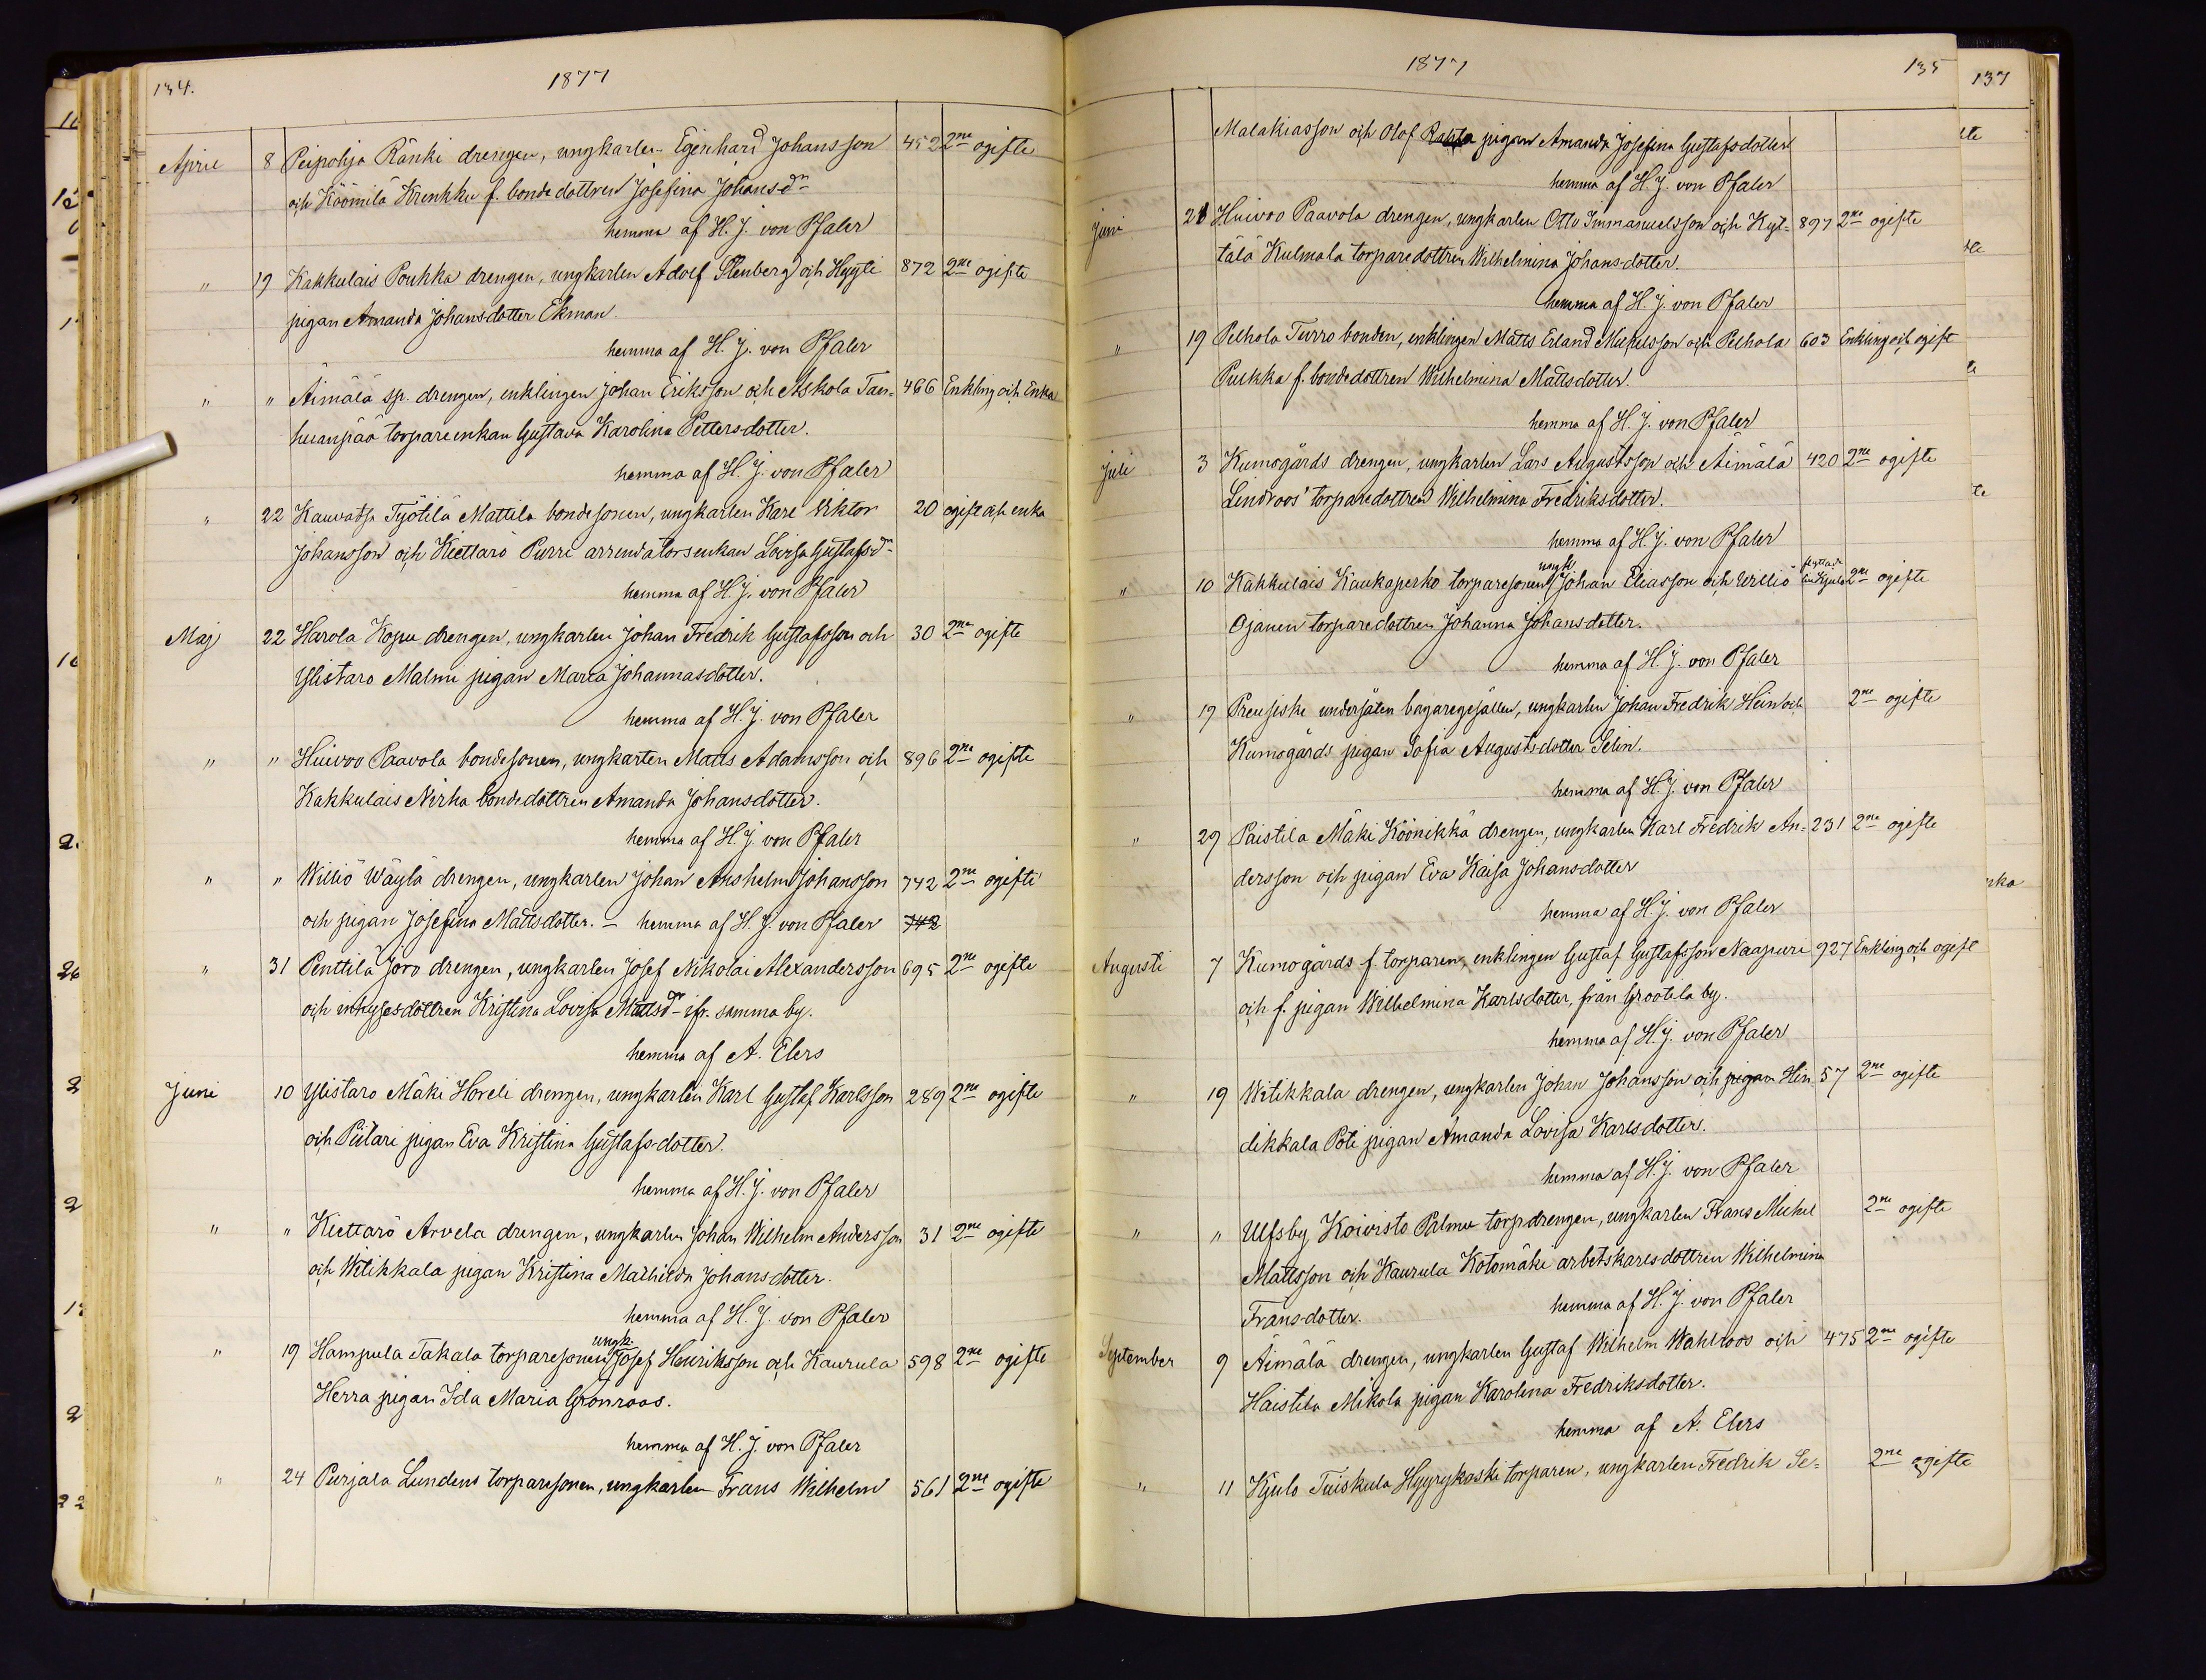 134.
1877
April 8 Peipohja Ränki drengen, ungkarlen Egenhard Johansson 452 2ne ogifte
och Köömilä Krenkku f. bonde dottren Josefina Johansdr
hemma af H. J. von Pfaler
" 19 Kakkulais Poukka drengen, ungkarlen Adolf Stenberg och Hyyti 872 2ne ogifte
pigan Amanda Johansdotter Ekman
hemma af H. J. von Pfaler
" " Äimälä sp. drengen, enklingen Johan Eriksson och Askola Tam= 466 Enkling och Enka
huanpää torpareenkan Gustava Karolina Pettersdotter.
hemma af H. J. von Pfaler
" 22 Kauvatsa Työtilä Mattila bondesonen, ungkarlen Karl Viktor 20 ogift och enka
Johansson och Kiettarö Purri arrendatorsenkan Lovisa Gustafsdr
hemma af H. J. von Pfaler
Maj 22 Harola Kopu drengen, ungkarlen Johan Fredrik Gustafsson och 30 2ne ogifte
Ylistaro Malmi pigan Maria Johannasdotter.
hemma af H. J. von Pfaler
" " Huivoo Paavola bondesonen, ungkarlen Matts Adamsson och 896 2ne ogifte
Kakkulais Nirha bondedottren Amanda Johansdotter.
hemma af H. J. von Pfaler
" " Williö Wäylä drengen, ungkarlen Johan Anshelm Johansson 742 2ne ogifte
och pigan Josefina Mattsdotter. – hemma af H. J. von Pfaler 742
" 31 Penttilä Joro drengen, ungkarlen Josef Nikolai Alexandersson 695 2ne ogifte
och inhysesdottren Kristina Lovisa Mattsdr ifr. samma by.
hemma af A. Elers
Juni 10 Ylistaro Mäki Horeli drengen, ungkarlen Karl Gustaf Karlsson 289 2ne ogifte
och Piitari pigan Eva Kristina Gustafs-dotter.
hemma af H. J. von Pfaler
" " Kiettarö Arvela drengen, ungkarlen Johan Wilhelm Andersson 31 2ne ogifte
och Witikkala pigan Kristina Mathilda Johansdotter.
hemma af H. J. von Pfaler
" 19 Hampula Takala torparesonen ungk. Josef Henriksson och Kaurula 598 2ne ogifte
Herra pigan Ida Maria Grönroos.
hemma af H. J. von Pfaler
" 24 Purjala Lundens torparesonen, ungkarlen Frans Wilhelm 561 2ne ogifte
1877
135
Malakiasson och Olof pigan Amanda Josefina Gustafsdotter
hemma af H. J. von Pfaler
Juni 21 Huivoo Paavola drengen, ungkarlen Otto Immanuelsson och Kyt= 897 2ne ogifte
tälä Kulmala torparedottren Wilhelmina Johans-dotter.
hemma af H. J. von Pfaler
" 19 Pelhola Turro bonden, enklingen Matts Erland Mikelsson och Pelhola 603 Enkling och ogift
Pukka f. bondedottren Wilhelmina Mattsdotter.
hemma af H. J. von Pfaler
Juli 3 Kumogårds drengen, ungkarlen Lars Augustsson och Äimälä 420 2ne ogifte
Lindroos' torparedottren Wilhelmina Fredriksdotter.
hemma af H. J. von Pfaler
" 10 Kakkulais Kaukaperko torparesonen ungk. Johan Eliasson och Williö flyttade till Kjulo 2ne ogifte
Ojanen torparedottren Johanna Johansdotter.
hemma af H. J. von Pfaler
" 19 Preussiske undersåten bagaregesällen, ungkarlen Johan Fredrik Hein och 2ne ogifte
Kumogårds pigan Sofia Augustsdotter Selin.
hemma af H. J. von Pfaler
" 29 Paistila Mäki Köönikkä drengen, ungkarlen Karl Fredrik An= 231 2ne ogifte
dersson och pigan Eva Kaisa Johansdotter
hemma af H. J. von Pfaler
Augusti 7 Kumogårds f. torparen, enklingen Gustaf Gustafsson Naapuri 927 Enkling och ogift
och f. pigan Wilhelmina Karlsdotter, från Grootila by.
hemma af H. J. von Pfaler
" 19 Witikkala drengen, ungkarlen Johan Johansson och pigan Hin 57 2ne ogifte
dikkala Poti pigan Amanda Lovisa Karlsdotter.
hemma af H. J. von Pfaler
" " Ulfsby Koivisto Palmu torpdrengen, ungkarlen Frans Mickel 2ne ogifte
Mattsson och Kaurula Kotomäki arbetskarlsdottren Wilhelmina
Frans-dotter. hemma af H. J. von Pfaler
September 9 Äimälä drengen, ungkarlen Gustaf Wilhelm Wahlroos och 475 2ne ogifte
Haistila Mikola pigan Karolina Fredriksdotter.
hemma af A. Elers
" 11 Kjulo Tuiskula Hyyrykoski torparen, ungkarlen Fredrik Se= 2ne ogifte
137